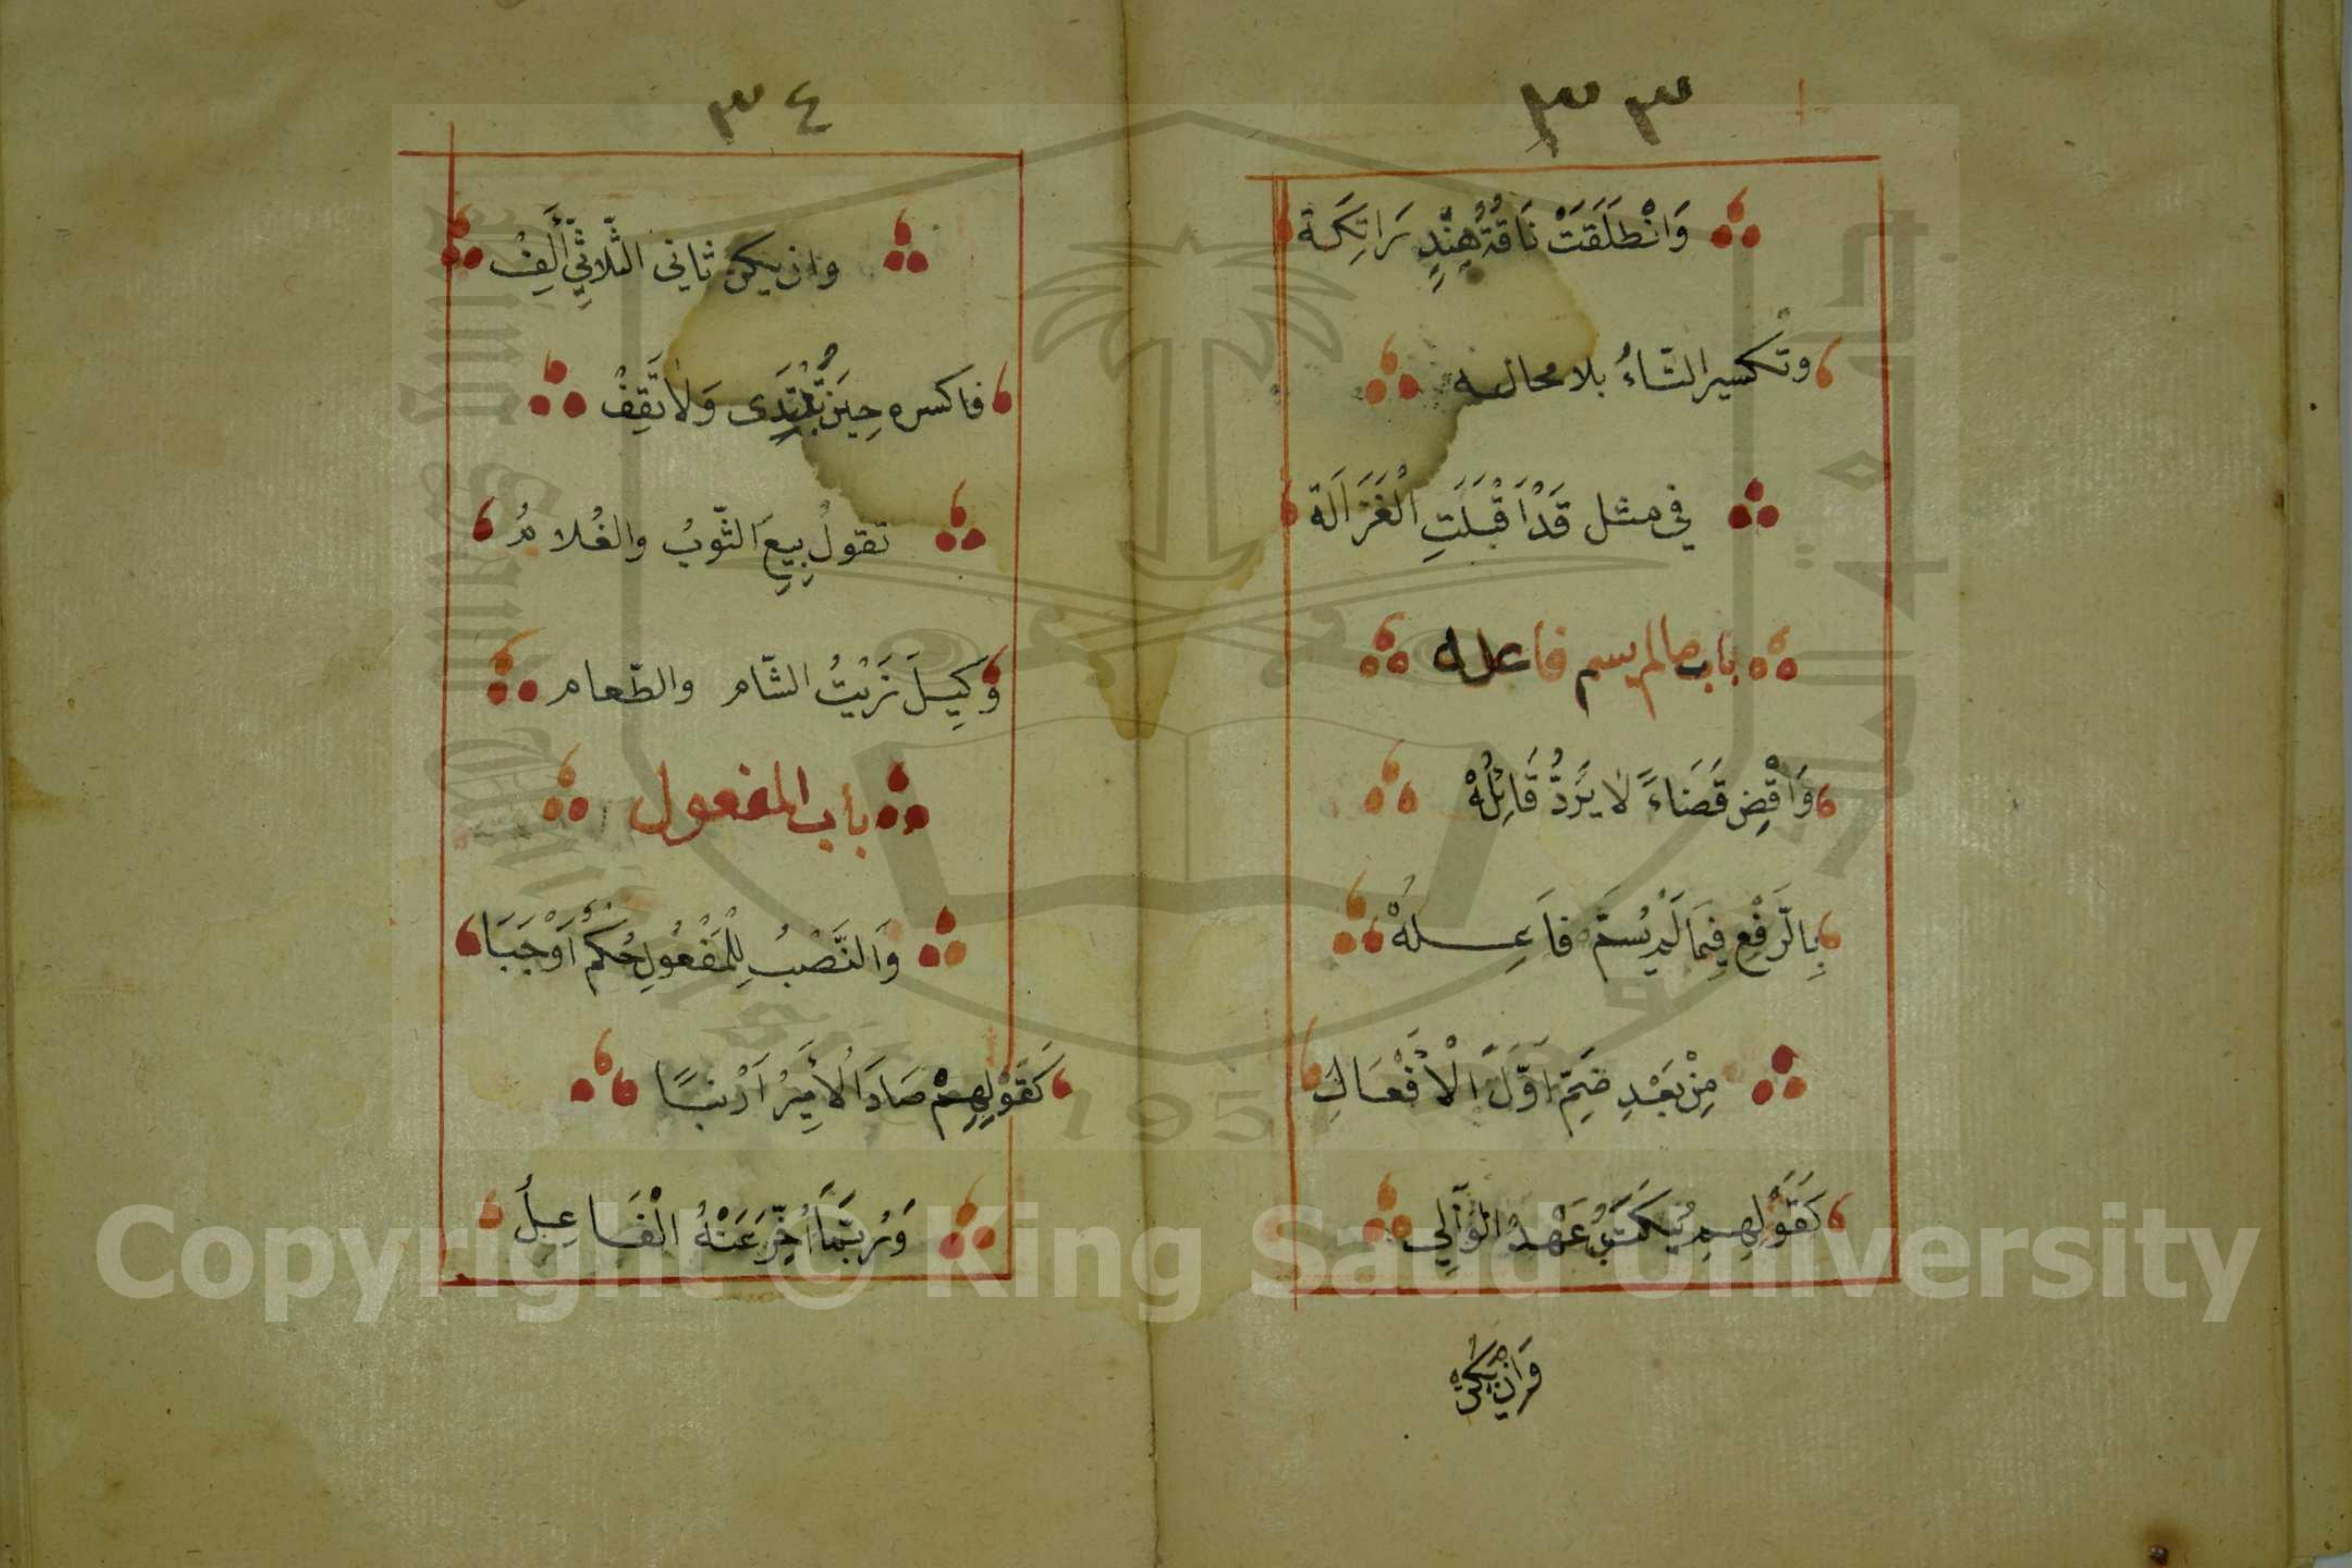 ٣٣
وَانْطَلَقَتْ نَاقَةُ هِنْدٍ رَاتِكَة
وتكسير التاءُ بلا محاله
في مثل قَدْ اَقْبَلَتِ الْغَزَالَة
باب ما لم يسم فاعله
وَاقْضِ قَضَاءً لَا يُرَدُّ قَائِلُهْ
بِالرَّفْعِ فِيمَا لَمْ يُسَمَّ فَاعِلُهْ
مِنْ بَعْدِ ضَمِّ اَوَّلَ الْاَفْعَالِ
كَقَوْلِهِمْ يُكْتَبُ عَهْدُ الْوَالِي
وَاِنْ يَكُنْ
٣٤
وان يكن ثاني الثّلاثيِّ أَلِفْ
فاكسره حِيْنَ تَبْتَدِى وَلَا تَقِفْ
تقولُ بِيعَ الثّوبُ والغُلامُ
وَكِيلَ زَيْتُ الشّام والطّعام
باب المفعول
وَالنَّصْبُ لِلْمَفْعُولِ حُكْمٌ اَوْجَبَا
كَقَوْلِهِمْ صَادَ الْأَمِيرُ اَرْنَبًا
وَرُبَّمَا اُخِّرَ عَنْهُ الْفَاعِلُ
Copyright © King Saud University
1957